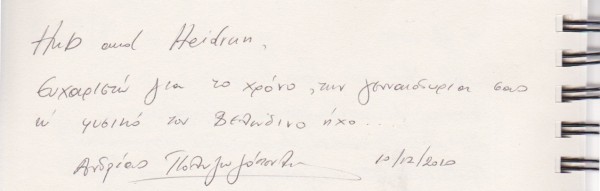 Hub and Heidrun,
Ευχαριστώ για το χρόνο, την γενναιοδωρία σας
κι' φυσικά τον Βελούδινο ήχο...
Ανδρέας 10/12/2010